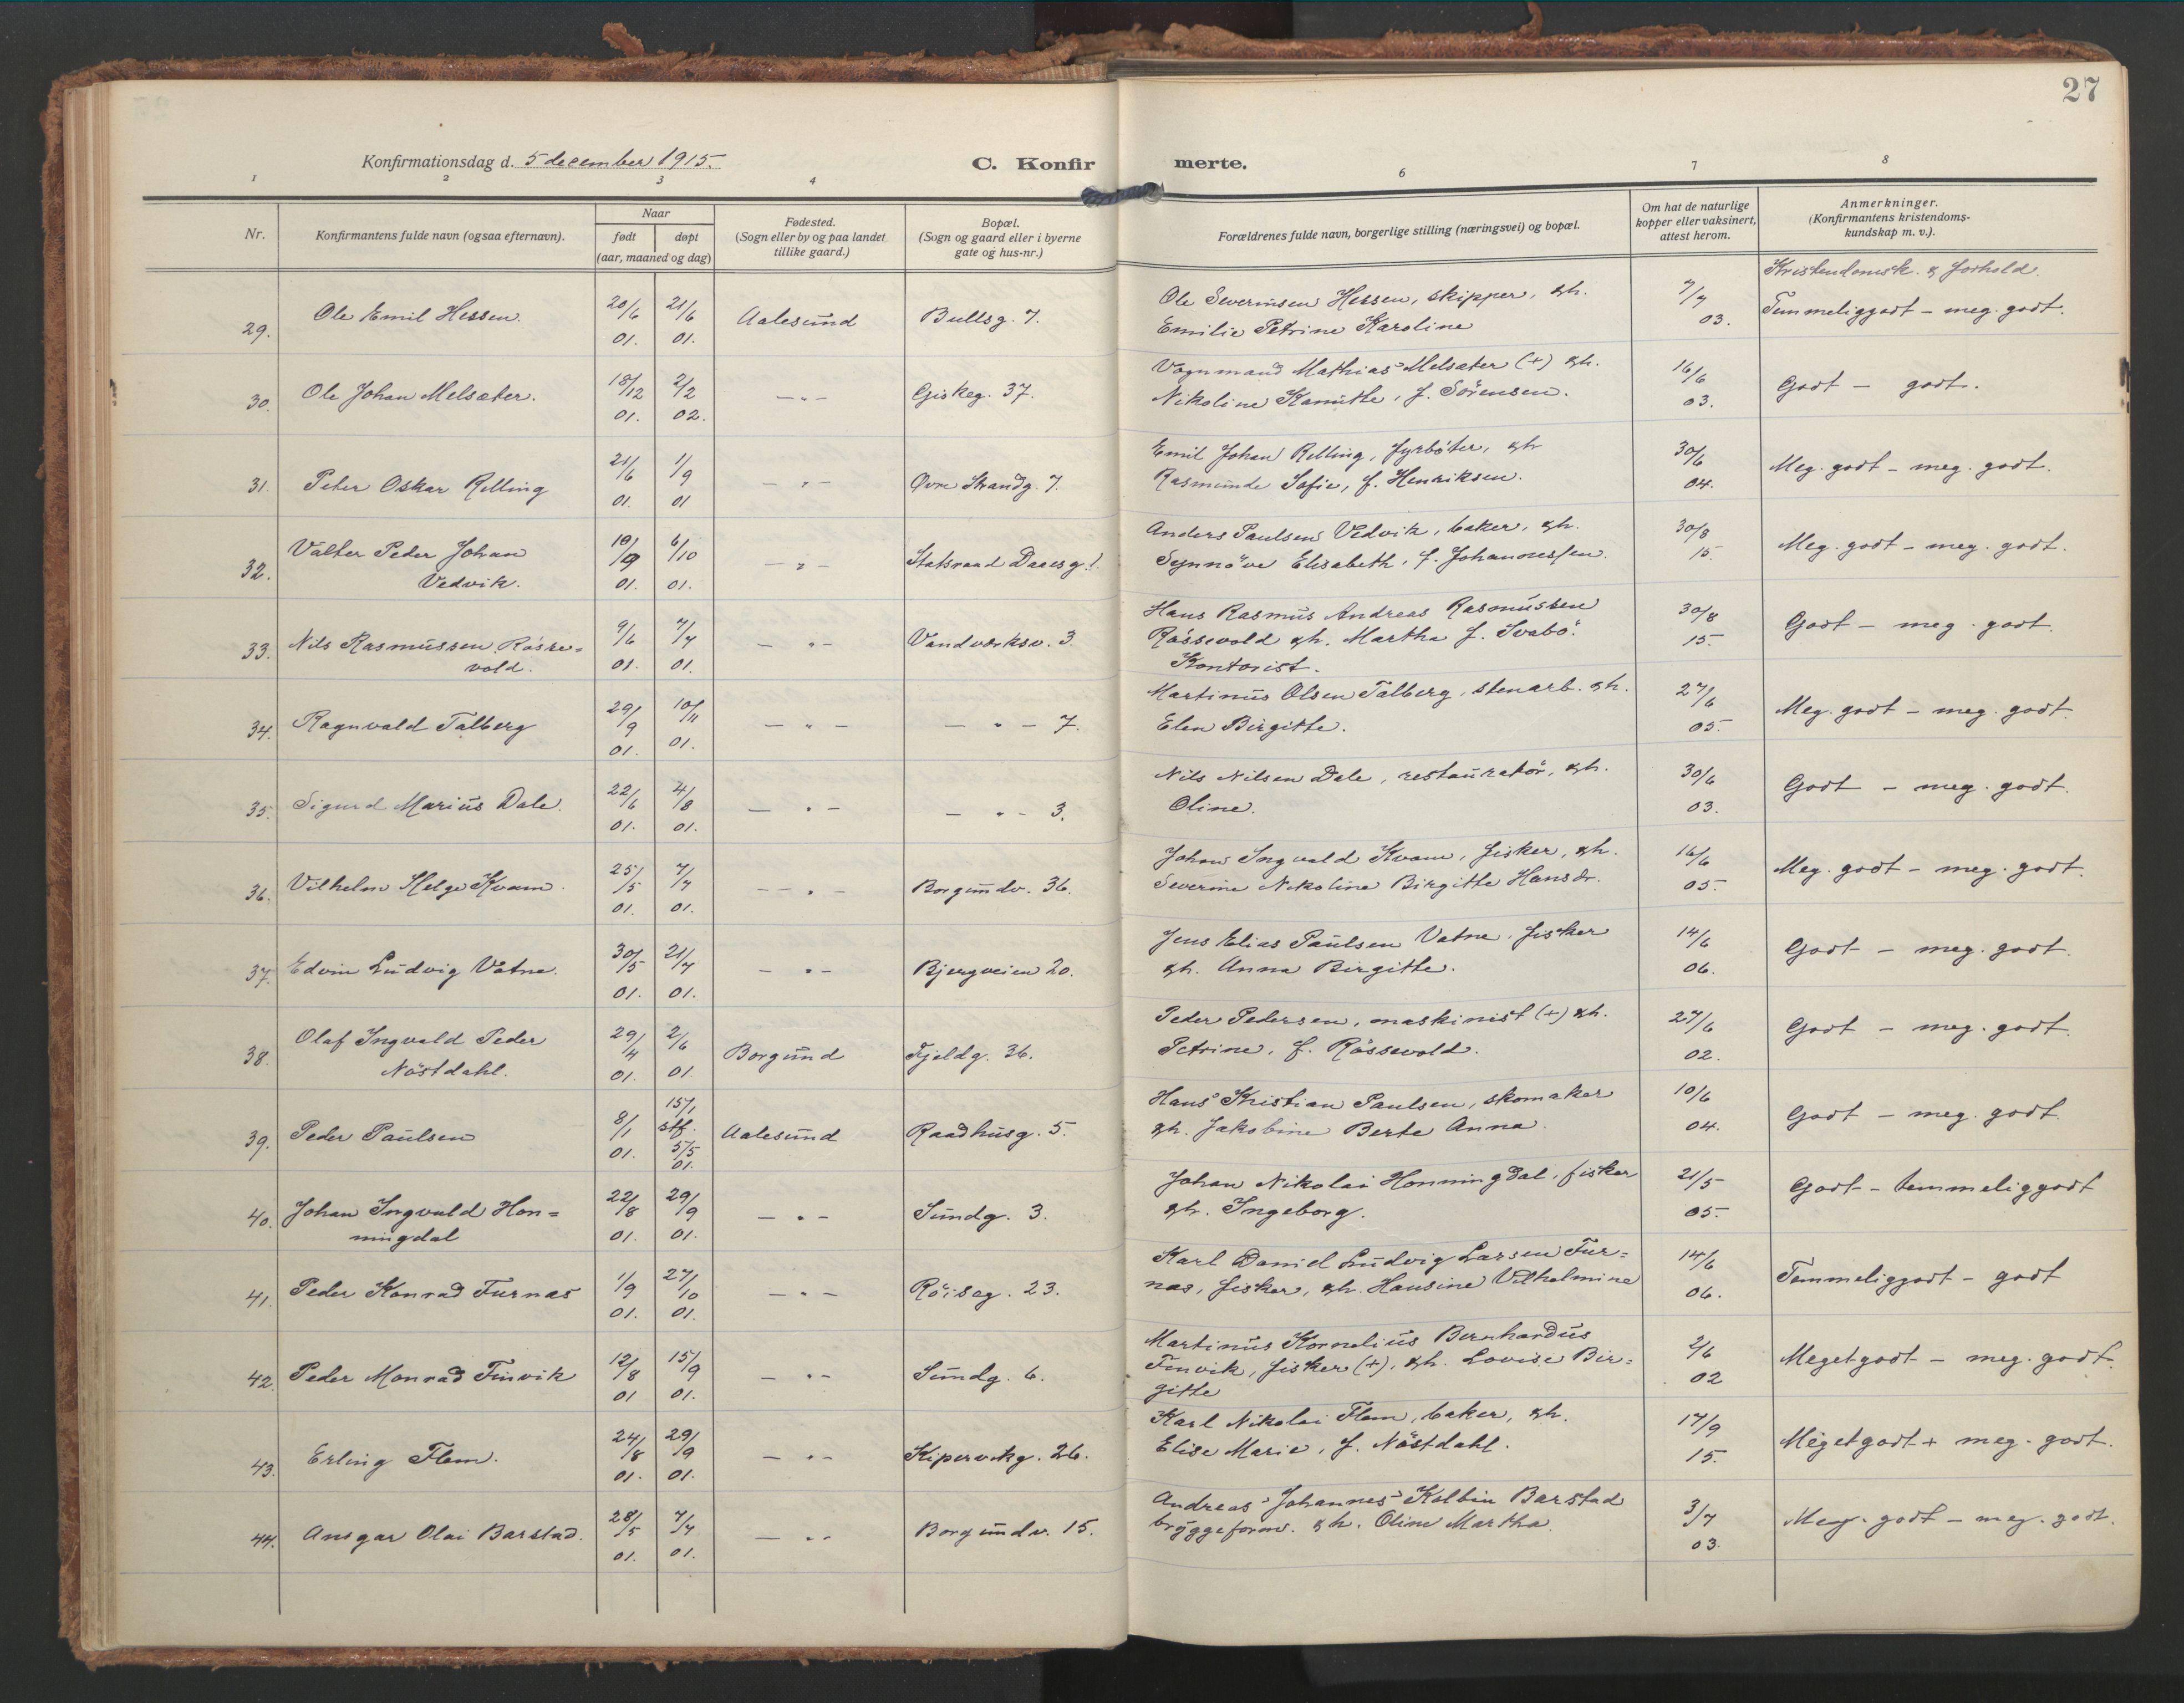 27
Konfirmationsdag d. 5 december 1915.
C. Konfirmerte.
1 2 3 4 6 7 8
Nr.
Konfirmantens fulde navn (ogsaa efternavn).
Naar
født døpt
(aar, maaned og dag)
Fødested.
(Sogn eller by og paa landet
tillike gaard.)
Bopæl.
(Sogn og gaard eller i byerne
gate og hus-nr.)
Forældrenes fulde navn, borgerlige stilling (næringsvei) og bopæl.
Om hat de naturlige
kopper eller vaksinert,
attest herom.
Anmerkninger.
(Konfirmantens kristendoms-
kundskap m. v.).
Kristendomsk. & forhold.
29. Ole Emil Hessen. 20/6 01. 21/6 01. Aalesund Bullsg. 7.
Ole Severinsen Hessen, skipper, & h.
Emilie Petrine Karoline
7/7 03. Temmeliggodt - meg. godt.
30. Ole Johan Melsæter. 18/12 01. 2/2 02. — " — Giskeg. 37.
Vognmand Mathias Melsæter (+) & h.
Nikoline Kanutte, f. Sörensen.
16/6 03. Godt - godt.
31. Peter Oskar Relling 21/6 01. 1/9 01 — " — Øvre Strandg. 7.
Emil Johan Relling, fyrböter, & h
Rasmunde Sofie, f. Henriksen.
30/6 04. Meg. godt - meg. godt.
32. Valter Peder Johan
Vedvik. 19/9 01. 6/10 01. — " — Statsraad Daaesg. 1.
Anders Paulsen Vedvik, baker, & h.
Synnöve Elisabeth, f. Johannessen.
30/8 15. Meg. godt - meg. godt.
33. Nils Rasmussen Rösse=
vold. 9/6 01. 7/7 01. — " — Vandværksv. 3.
Hans Rasmus Andreas Rasmussen
Rössevold & h. Martha f. Svabö.
Kontorist.
30/8 15. Godt - meg. godt.
34. Ragnvald Talberg 29/9 01. 10/11 01. — " — — " — 7.
Martinus Olsen Talberg, stenarb. & h.
Elen Birgitte.
27/6 05. Meg. godt - meg. godt.
35. Sigurd Marius Dale. 22/6 01. 4/8 01. — " — — " — 3.
Nils Nilsen Dale, restauratör, & h.
Oline.
30/6 03. Godt - meg. godt.
36. Vilhelm Helge Kvam. 25/5 01. 7/7 01. — " — Borgundv. 36.
Johan Ingvald Kvam, fisker, & h.
Severine Nikoline Birgitte Hansdr.
16/6 05. Meg. godt - meg. godt.
37. Edvin Ludvig Vatne. 30/5 01. 21/7 01. — " — Bjergveien 20.
Jens Elias Paulsen Vatne, fisker
& h. Anna Birgitte.
14/6 06. Godt - meg. godt.
38. Olaf Ingvald Peder
Nöstdahl. 29/4 01. 2/6 01. Borgund Fjeldg. 36.
Peder Pedersen, maskinist (+) & h.
Petrine, f. Rössevold.
27/6 02. Godt - meg. godt.
39. Peder Paulsen 8/1 01. 15/1 stf. 5/5 01. Aalesund Raadhusg. 5.
Hans Kristian Paulsen, skomaker
& h. Jakobine Berte Anna.
10/6 04. Godt - meg. godt.
40. Johan Ingvald Hon=
ningdal 22/8 01. 29/9 01. — " — Sundg. 3.
Johan Nikolai Honningdal, fisker
& h. Ingeborg.
21/5 05. Godt - temmeliggodt
41. Peder Konrad Furnas 1/9 01. 27/10 01. — " — Röisag. 23.
Karl Daniel Ludvig Larsen Fur=
nas, fisker, & h. Hansine Vilhelmine
14/6 06. Temmeliggodt - godt
42. Peder Monrad Finvik 12/8 01 15/9 01. — " — Sundg. 6.
Martinus Kornelius Bernhardus
Finvik, fisker (+), & h. Lovise Bir=
gitte
2/6 02 Megetgodt - meg. godt.
43. Erling Flem. 24/8 01. 29/9 01. — " — Kipervikg. 26.
Karl Nikolai Flem, baker, & h.
Elise Marie, f. Nöstdahl.
17/9 15. Megetgodt + meg. godt.
44. Ansgar Olai Barstad. 28/5 01. 7/7 01. — " — Borgundv. 15.
Andreas Johannes Kolbin Barstad
bryggeform. & h. Oline Martha.
3/7 03. Meg. godt - meg. godt.